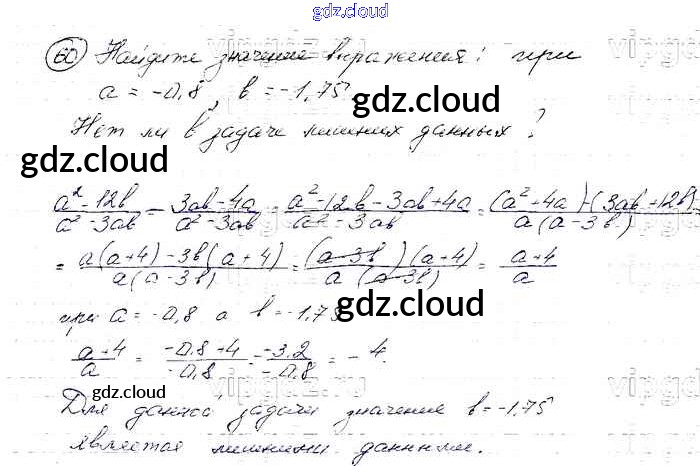 gdz.cloud
60 Найдите значение выражения: при
a = -0,8, b = -1,75.
gdz.cloud
Нет ли в задаче лишних данных?
gdz.cloud
(a² - 12b)/(a² - 3ab) - (3ab - 4a)/(a² - 3ab) = (a² - 12b - 3ab + 4a)/(a² - 3ab) = ((a² + 4a) - (3ab + 12b))/(a(a - 3b)) =
= (a(a + 4) - 3b(a + 4))/(a(a - 3b)) = ((a - 3b)(a + 4))/(a(a - 3b)) = (a + 4)/a
gdz.cloud
при a = -0,8 а b = -1,75
(a + 4)/a = (-0,8 + 4)/-0,8 = -3,2/-0,8 = -4.
gdz.cloud
gdz.cloud
Для данной задачи значение b = -1,75
является лишними данными.